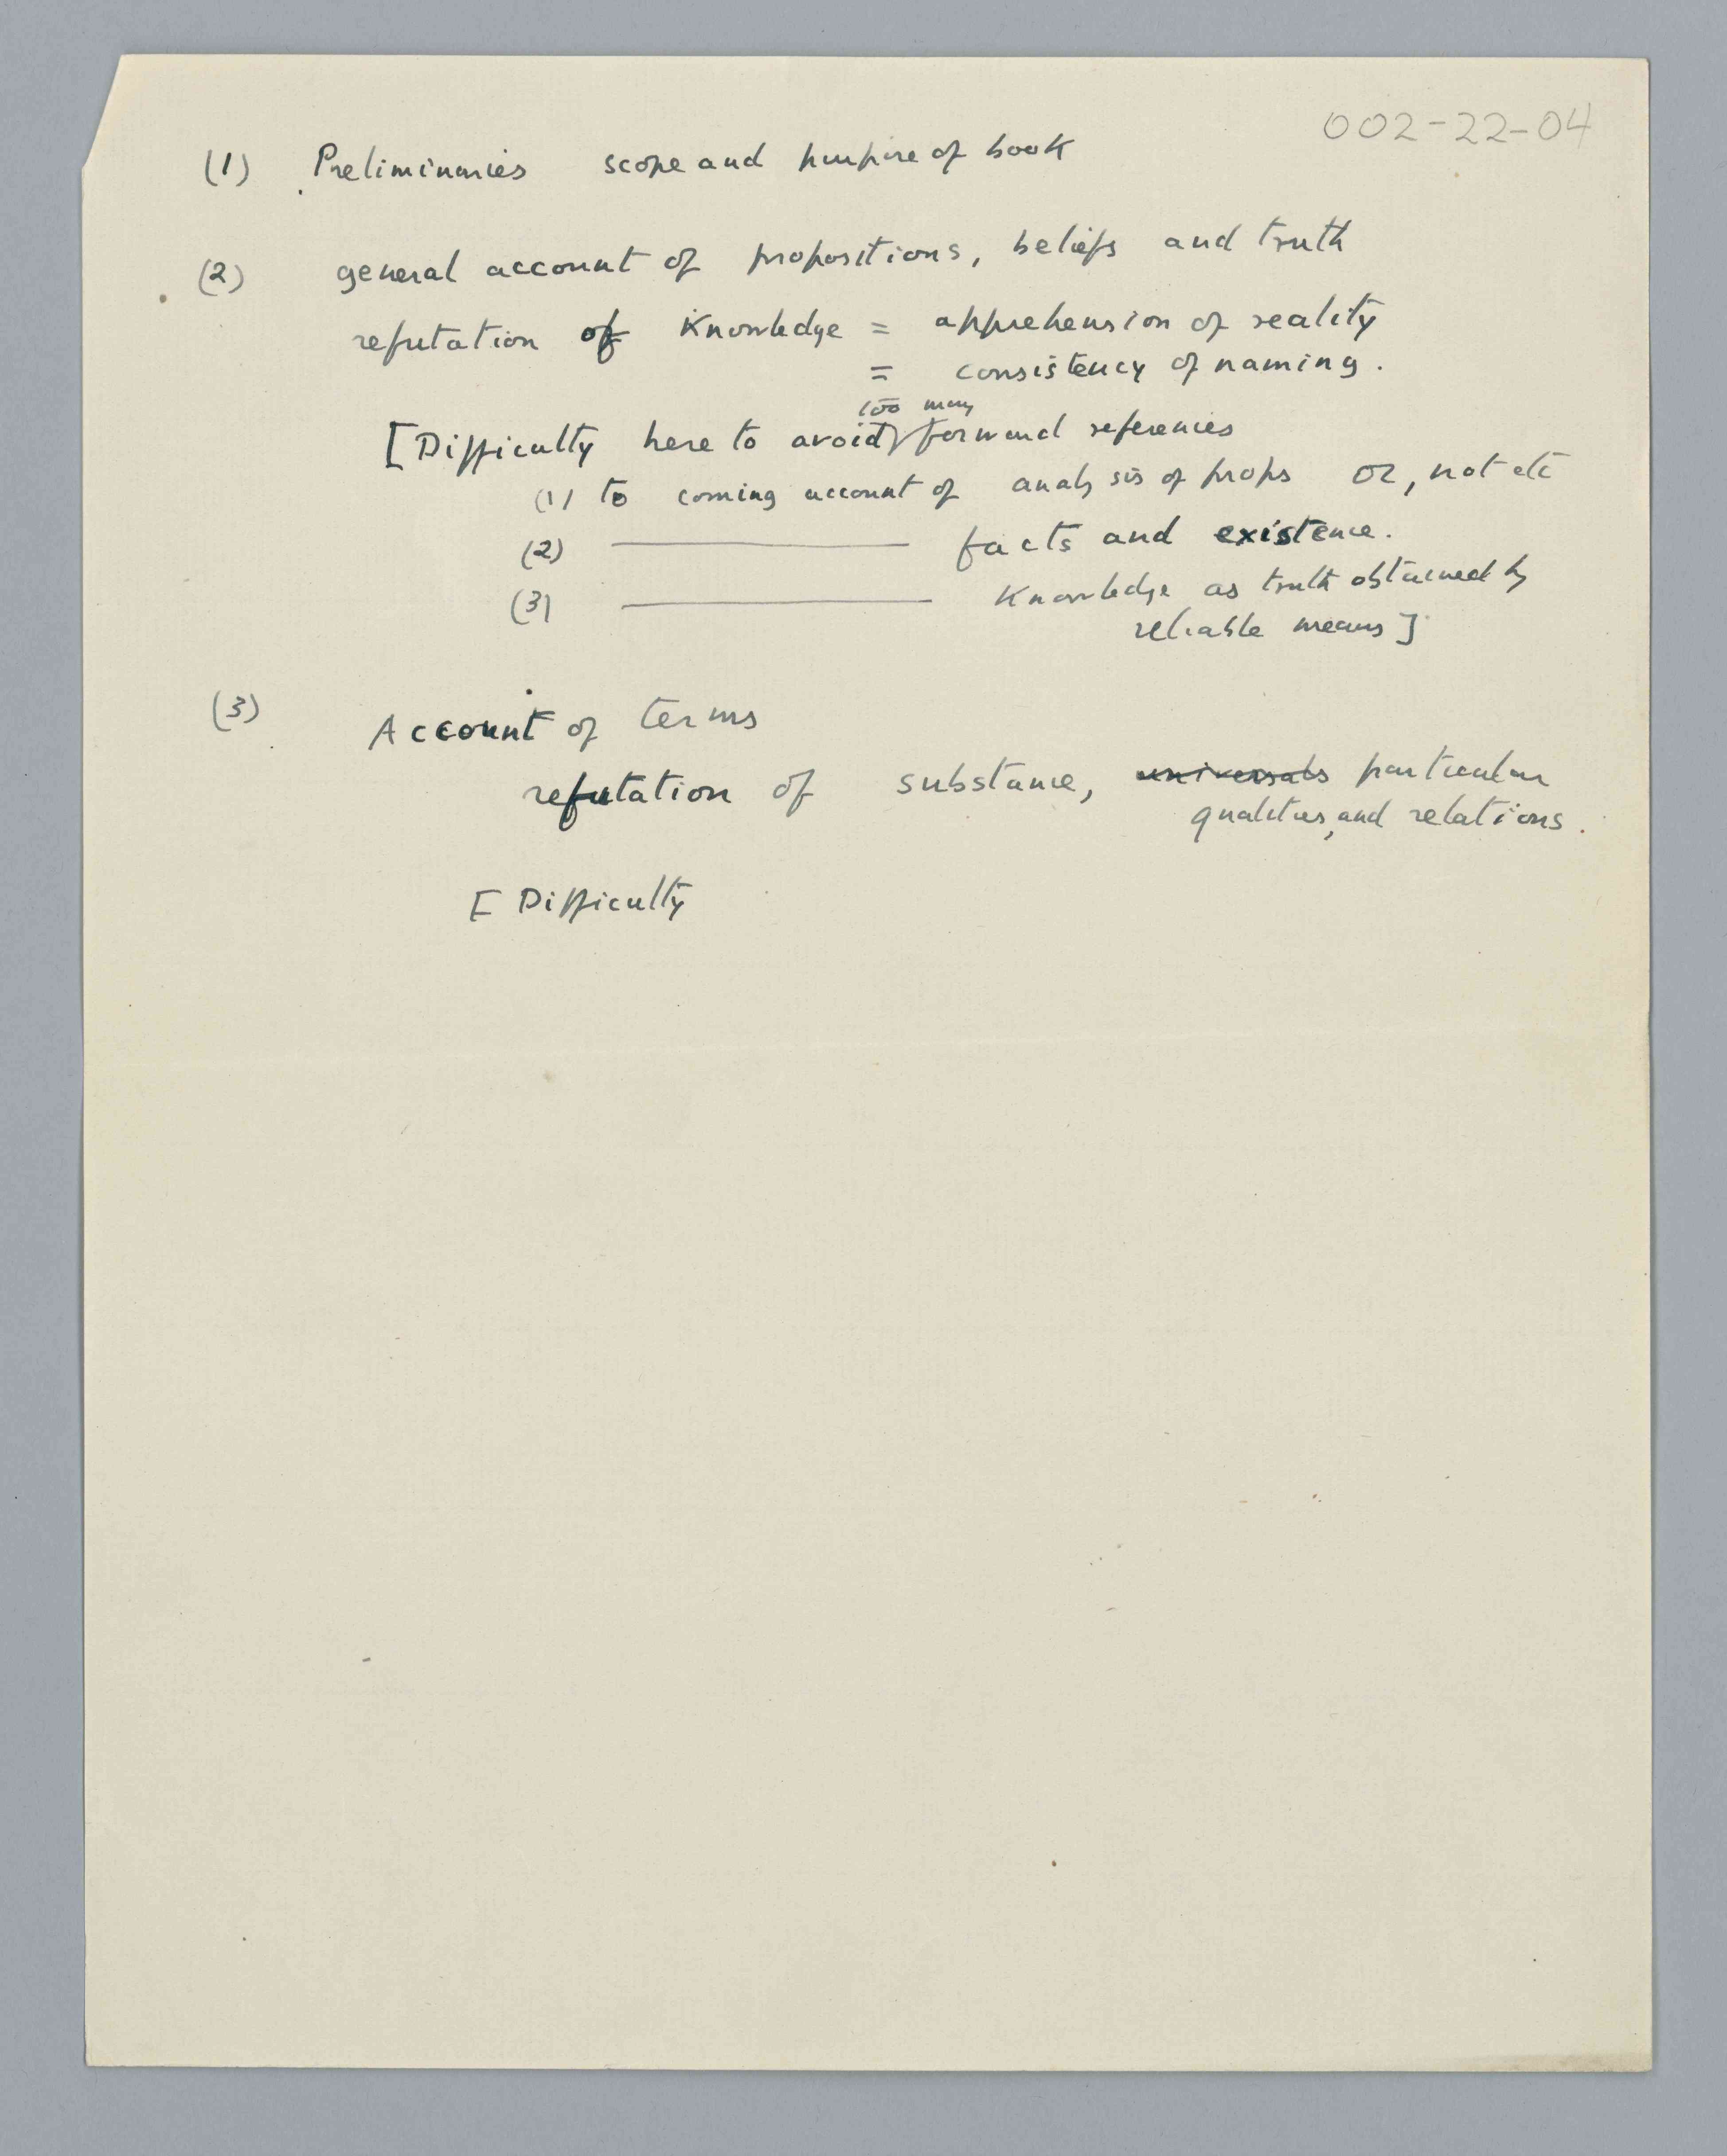 002-22-04
(1) Preliminaries scope and purpose of book
(2) general account of propositions, beliefs and truth
refutation of Knowledge = apprehension of reality
= consistency of naming.
too many
[Difficulty here to avoid forward references
(1) to coming account of analysis of props or, not etc
(2) ——— facts and existence.
(3) ——— Knowledge as truth obtained by
reliable means]
(3) Account of terms
refutation of substance, universals particular
qualities, and relations.
[ Difficulty